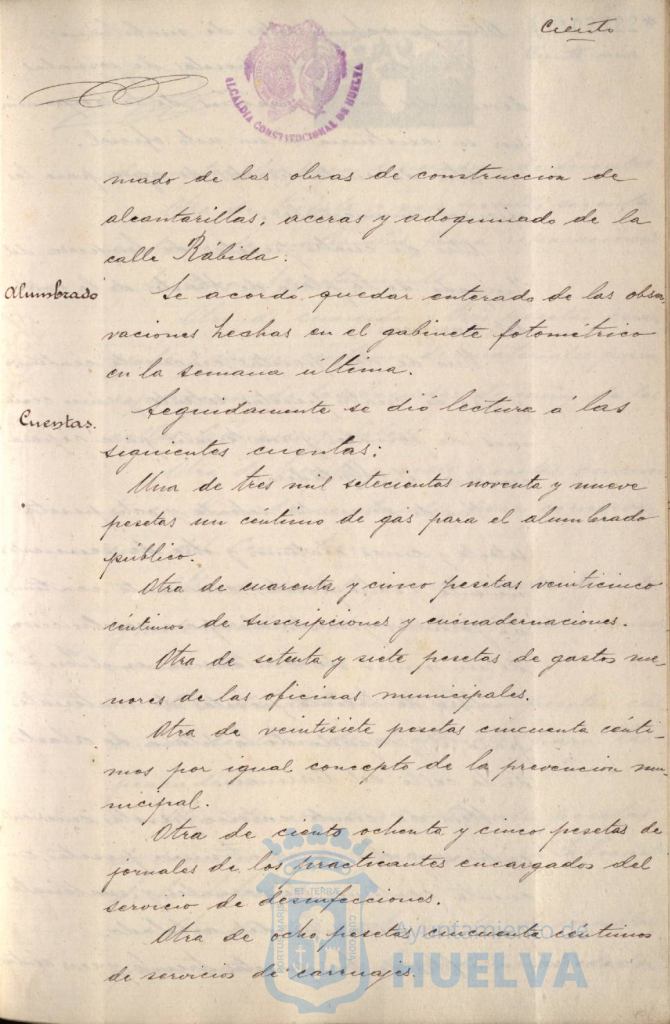 Ciento
ALCALDIA CONSTITUCIONAL DE HUELVA
mado de las obras de construccion de
alcantarillas, aceras y adoquinado de la
calle Rábida.
Alumbrado
Se acordó quedar enterado de las obser-
vaciones hechas en el gabinete fotométrico
en la semana última.
Cuentas.
Seguidamente se dió lectura á las
siguientes cuentas:
Una de tres mil setecientas noventa y nueve
pesetas un céntimo de gas para el alumbrado
público.
Otra de cuarenta y cinco pesetas veinticinco
céntimos de suscripciones y encuadernaciones.
Otra de setenta y siete pesetas de gastos me-
nores de las oficinas municipales.
Otra de veintisiete pesetas cincuenta cénti-
mos por igual concepto de la prevencion mu-
nicipal.
Otra de ciento ochenta y cinco pesetas de
jornales de los practicantes encargados del
servicio de desinfecciones.
Otra de ocho pesetas cincuenta céntimos
de servicios de carruajes.
PORTUS MARIS ET TERRAE CUSTODIA
Ayuntamiento de
HUELVA